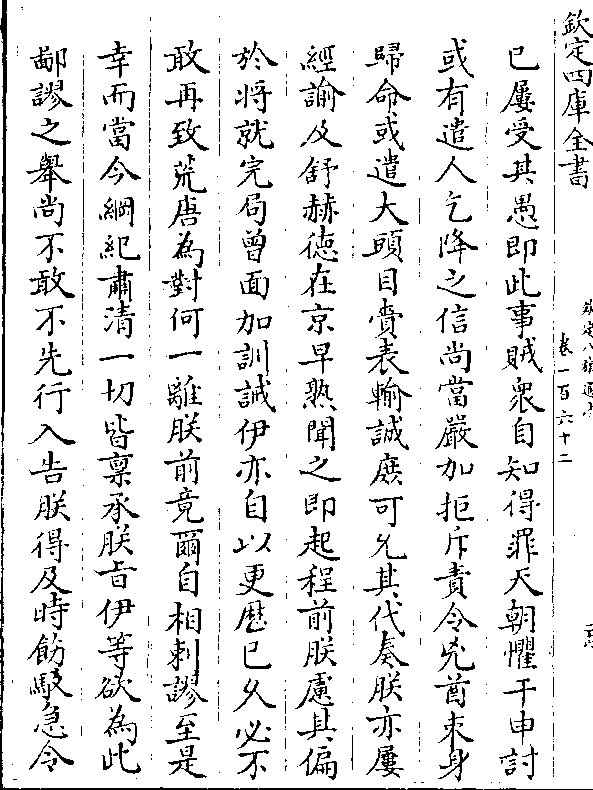 欽定四庫全書
欽定八旗通志
卷一百六十二
已屢受其愚即此事賊衆自知得罪天朝懼干申討
或有遣人乞降之信尚當嚴加拒斥責令兇酋束身
歸命或遣大頭目賫表輸誠庶可允其代奏朕亦屢
經諭及舒赫徳在京早熟聞之即起程前朕慮其偏
於將就完局曾面加訓誡伊亦自以更歴已久必不
敢再致荒唐為對何一離朕前竟爾自相剌謬至是
幸而當今綱紀肅清一切皆禀承朕旨伊等欲為此
鄙謬之舉尚不敢不先行入告朕得及時飭駮急令